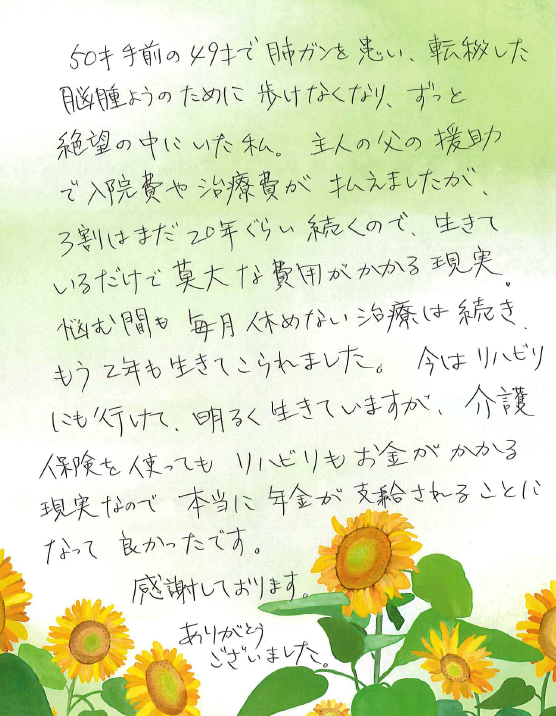 50才手前の49才で肺ガンを患い、転移した
脳腫ようのために歩けなくなり、ずっと
絶望の中にいた私。主人の父の援助
で入院費や治療費が払えましたが、
3割はまだ20年ぐらい続くので、生きて
いるだけで莫大な費用がかかる現実。
悩む間も毎月休めない治療は続き、
もう2年も生きてこられました。今はリハビリ
にも行けて、明るく生きていますが、介護
保険を使ってもリハビリもお金がかかる
現実なので本当に年金が支給されることに
なって良かったです。
感謝しております。
ありがとう
ございました。